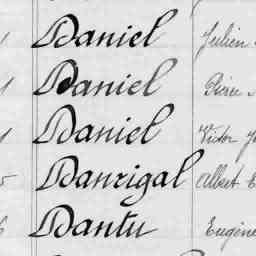 Daniel Julien
Daniel Pierre
Daniel Victor
Danrigal Albert E
Dantu Eugène